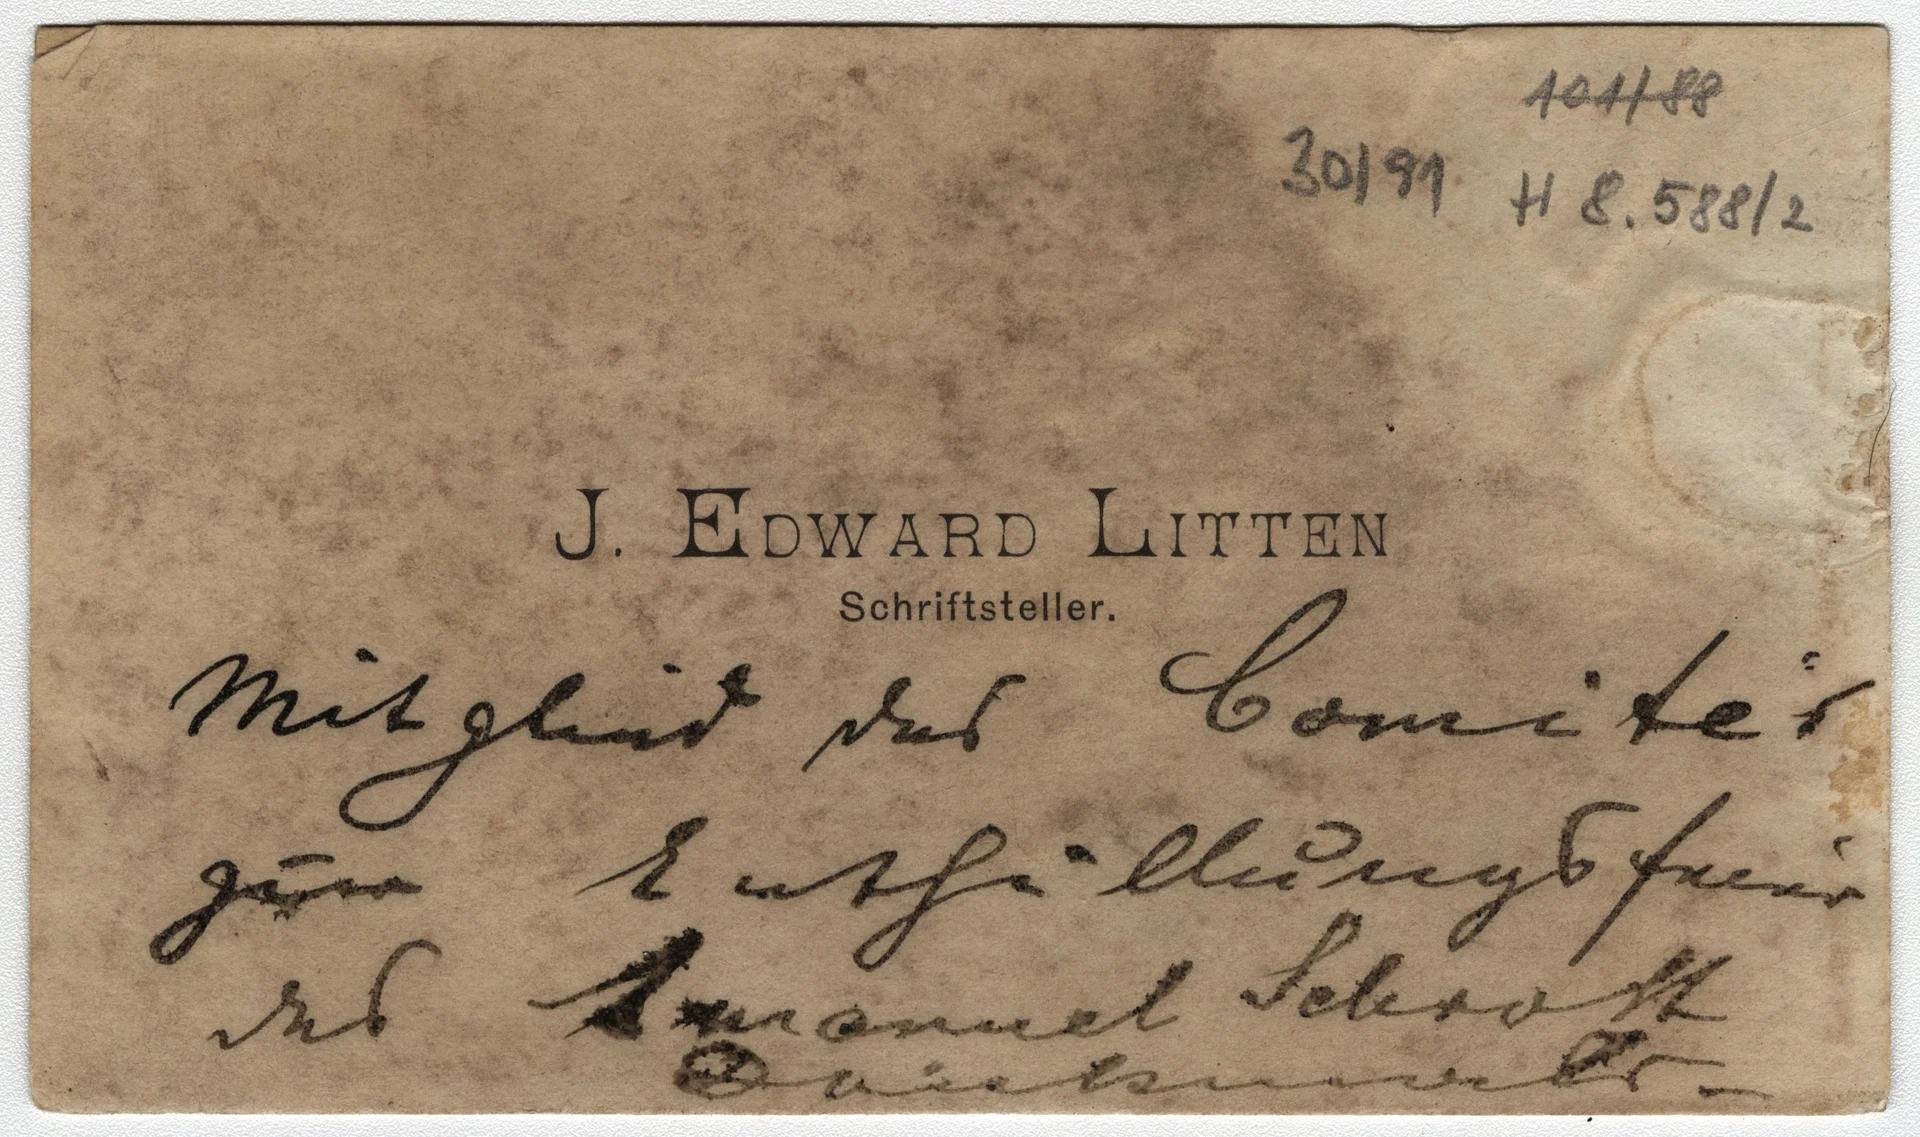 101/88
30/91 H 8.588/2
J. EDWARD LITTEN
Schriftsteller.
Mitglied des Comités
zur Enthüllungsfeier
des Emanuel Schrott
Denkmals